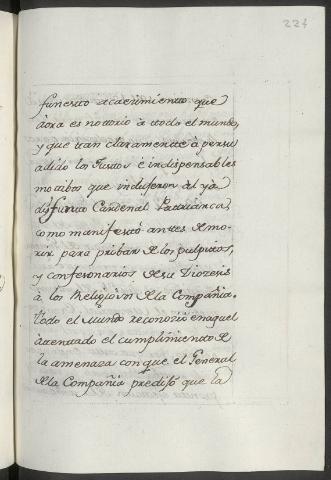 224
funesto acaecimiento que
aora es nottorio à ttodo el mundo,
y que ttan claramentte à persu
adido los Justtos è indispensables
mottibos que indujeron àl yà
difuntto Cardenal Pattriarca,
como manifestò anttes de mo-
rir para pribar de los pulpittos,
y confesonarios de su Diozesis
à los Religiosos de la Compañia.
ttodo el mundo reconoziò en aquel
attenttado el cumplimientto de
la amenaza con que el General
de la Compañia predijo que la